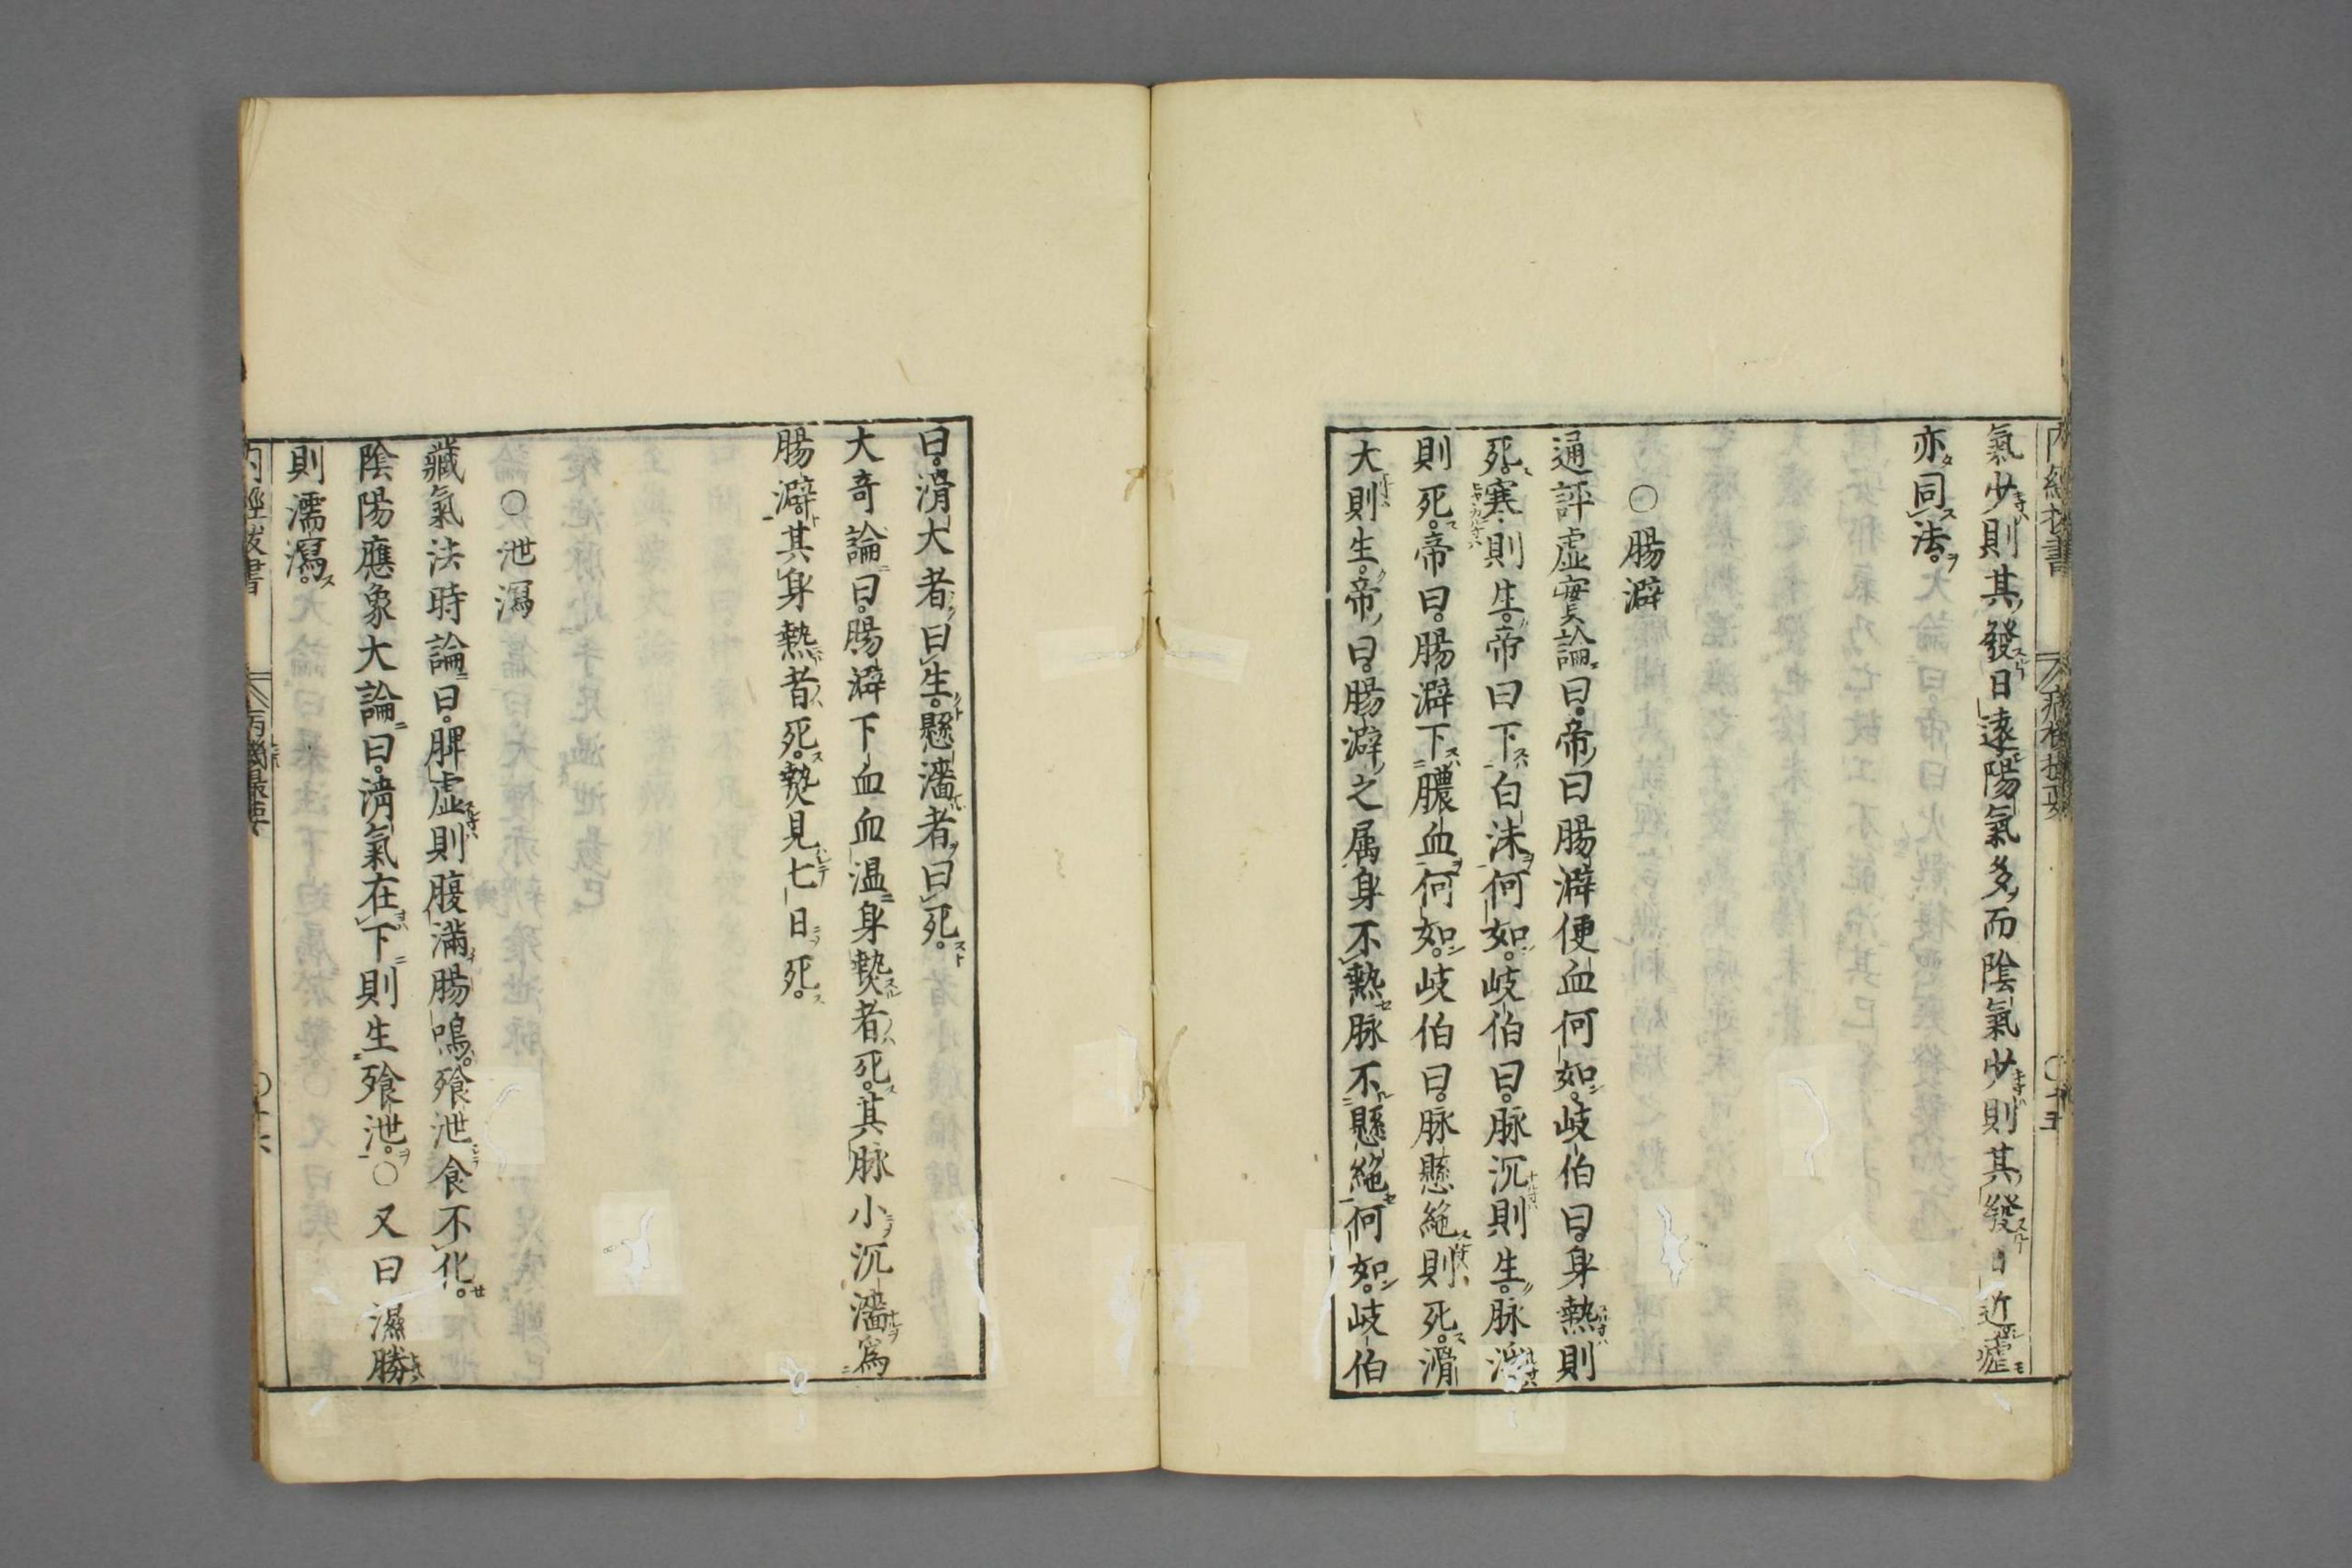 氣少則其發日遠陽氣多而陰氣少則其發日近瘧
亦同法
○腸澼
通評虛實論曰帝曰腸澼便血何如岐伯曰身熱則
死寒則生帝曰下白沫何如岐伯曰脉沉則生脉浮
則死帝曰腸澼下膿血何如岐伯曰脉懸絶則死滑
大則生帝曰腸澼之属身不熱脉不懸絶何如岐伯
曰滑大者曰生懸濇者曰死
大奇論曰腸澼下血血温身熱者死其脉小沉濇爲
腸澼其身熱者死熱見七日死
○泄瀉
藏氣法時論曰脾虛則腹滿腸鳴飱泄食不化
陰陽應象大論曰淸氣在下則生飱泄○又曰濕勝
則濡瀉